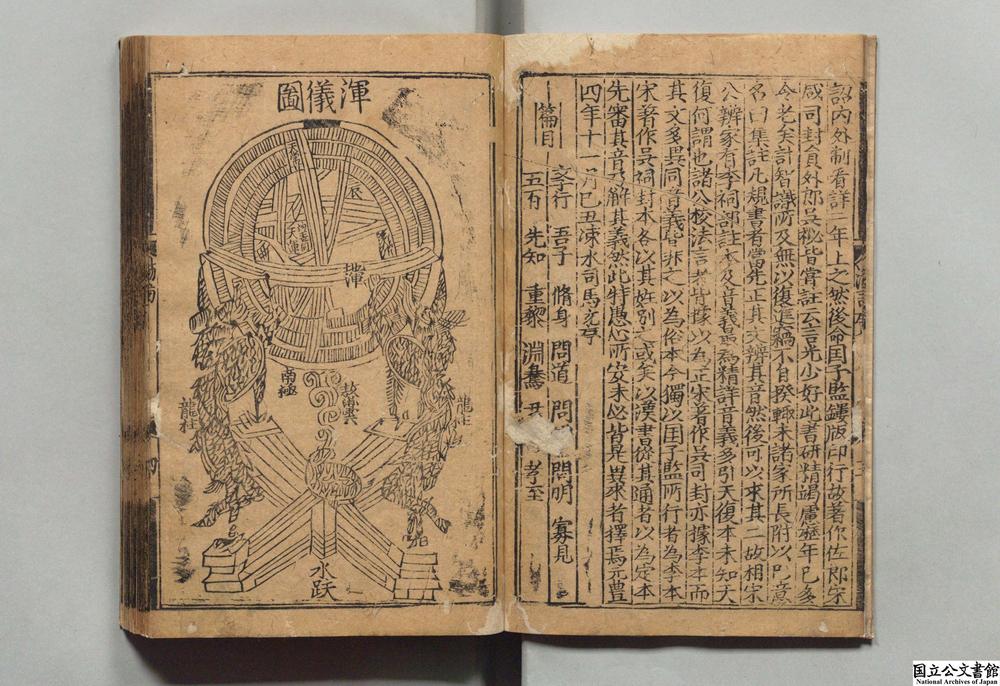 詔內外制看詳二年上之然後命国子監鏤版印行故著作佐郎宋
咸司封員外郎吳祕皆嘗註云光少好此書研精竭慮歷年已多
今老矣計智識所及無以復進竊不自揆輒采諸家所長附以己意
名曰集註凡規書者當先正其文辨其音然後可以求其二故相宋
公辨家有李祠部註本及音義最為精詳音義多引天復本未知天
復何謂也諸公校法言者皆據以為正宋著作吳司封亦據李本而
其文多異同音義皆非之以為俗本今獨以国子監所行者為李本
宋著作吳祠封本各以其姓別之或矣以漢書從其通者以為定本
先審其音乃解其義然此特愚心所安未必皆是異求者擇焉元豊
四年十一月己丑涑水司馬光序
篇目 孝行 吾子 脩身 問道 問 問明 寡見
五百 先知 重黎 淵騫 孝至
渾儀圖
辰
天運
渾
南極
龍柱
龍柱
水趺
国立公文書館
National Archives of Japan